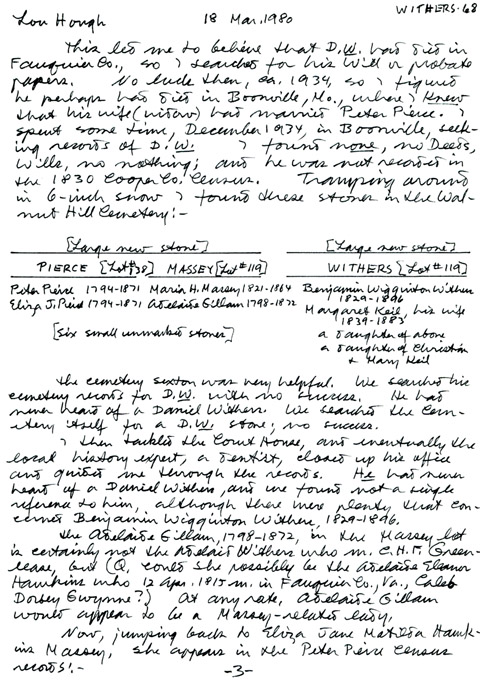 WITHERS-68
Lou Hough 18 Mar. 1980
This led me to believe that D.W. had died in
Fauquier Co., so I searched for his Will or probate
papers. No luck then, ca. 1934, so I figured
he perhaps had died in Boonville, Mo., where I knew
that his wife (widow) had married Peter Pierce. I
spent some time, December 1934, in Boonville, seek-
ing records of D.W. I found none, no Deeds,
Wills, no nothing; and he was not recorded in
the 1830 Cooper Co. Census. Tramping around
in 6-inch snow I found these stones in the Wal-
nut Hill Cemetery:-
[Large new stone] [Large new stone]
PIERCE [Lot #38] MASSEY [Lot #119] WITHERS [Lot #119]
Peter Peirce 1794-1871 Maria H. Massey, 1821-1864 Benjamin Wigginton Withers
Eliza J. Peirce 1794-1871 Adelaide Gillam 1798-1872 1829-1896
Margaret Keil, his wife
1839-1883
[six small unmarked stones] a daughter of above
a daughter of Christian
& Mary Keil
The cemetery sexton was very helpful. We searched his
cemetery records for D.W. with no success. He had
never heard of a Daniel Withers. We searched the Cem-
etery itself for a D.W. stone; no success.
I then tackled the Court House, and eventually the
local history expert, a dentist, closed up his office
and guided me through the records. He had never
heard of a Daniel Withers, and we found not a single
reference to him, although there were plenty that con-
cerned Benjamin Wigginton Withers, 1829-1896.
The Adelaide Gillam, 1798-1872, in the Massey lot
is certainly not the Adelaid Withers who m. C.H.T. Green-
lease, but (Q. could she possibly be the Adelaide Eleanor
Hawkins who 12 Apr. 1815 m. in Fauquier Co., Va., Caleb
Dorsey Gwynne?) At any rate, Adelaide Gillam
would appear to be a Massey-related lady.
Now, jumping back to Eliza Jane Matilda Hawk-
ins Massey, she appears in the Peter Peirce Census
records:-
-3-